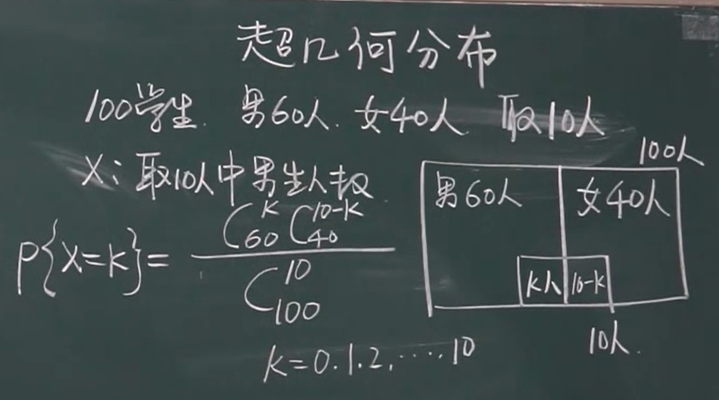 超几何分布
100学生. 男60人. 女40人 取10人
X: 取10人中男生人数
P{X=K}= C_{60}^{K} C_{40}^{10-K} / C_{100}^{10}
K=0.1.2.……10
100人
男60人 女40人
K人 10-K
10人.